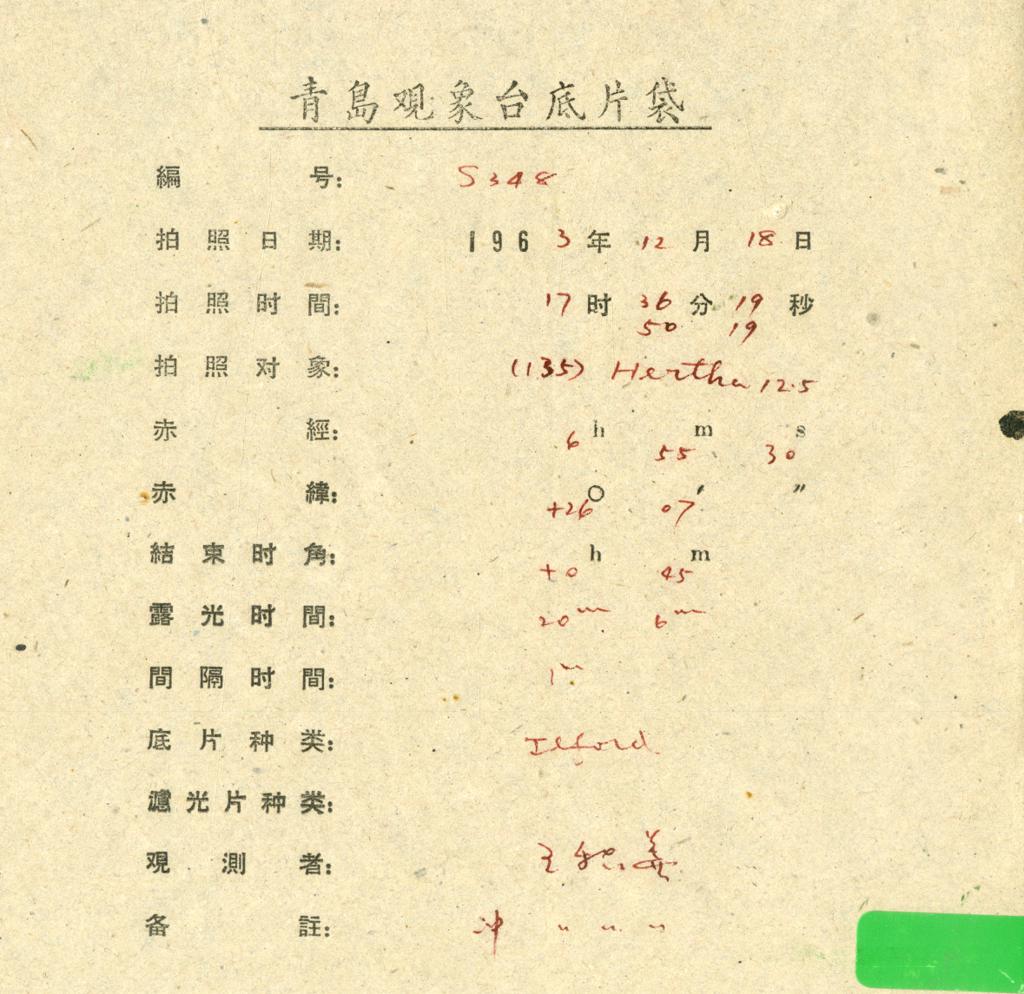 青島观象台底片袋
編号: S348
拍照日期: 1963年12月18日
拍照时間: 17时36分19秒
50 19
拍照对象: (135) Hertha 12.5
赤經: 6h 55m 30s
赤緯: +26° 07′ ″
結束时角: +0h 45m
露光时間: 20m 6m
間隔时間: 1m
底片种类: Ilford
濾光片种类:
观測者: 王
备註: 冲 〃 〃 〃